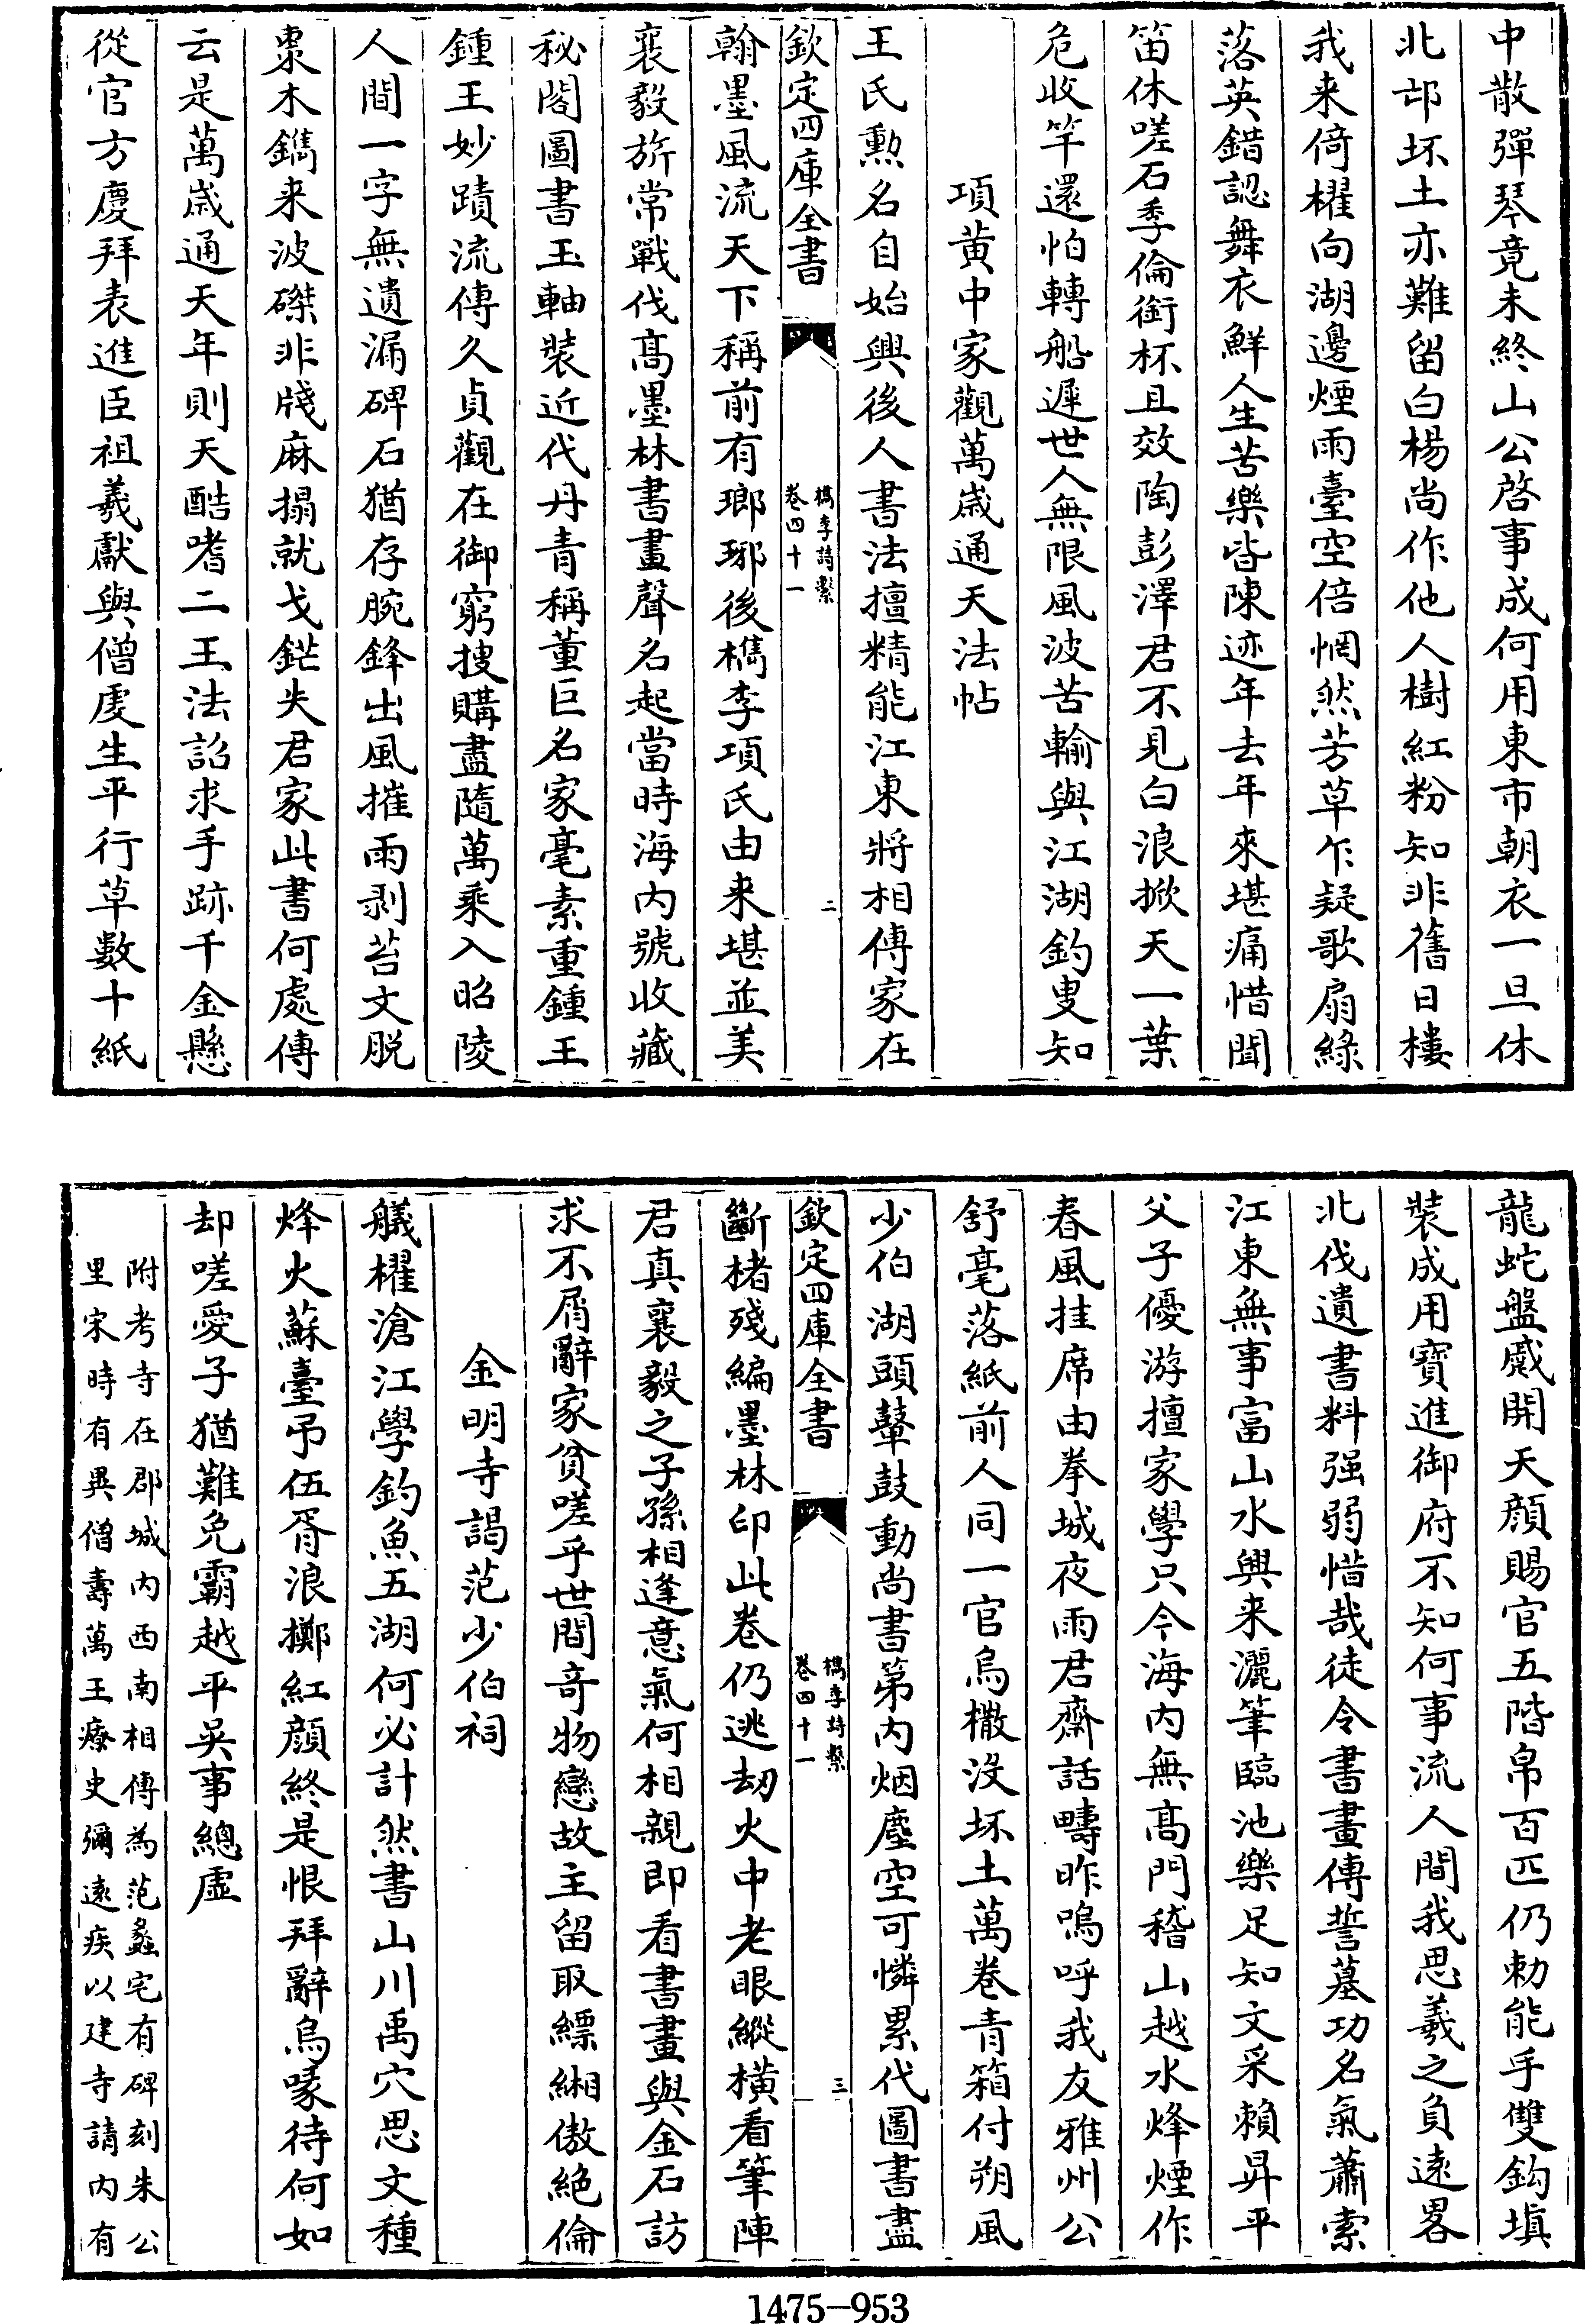 中散彈琴竟未終山公啓事成何用東市朝衣一旦休
北邙坏土亦難留白楊尚作他人樹紅粉知非舊日樓
我来倚櫂向湖邊煙雨臺空倍惘然芳草乍疑歌扇緑
落英錯認舞衣鮮人生苦樂皆陳迹年去年來堪痛惜聞
笛休嗟石季倫銜杯且效陶彭澤君不見白浪掀天一葉
危收竿還怕轉船遲世人無限風波苦輸與江湖釣叟知
項黄中家觀萬歲通天法帖
王氏勲名自始興後人書法擅精能江東將相傳家在
欽定四庫全書
檇李詩繫
卷四十一
二
翰墨風流天下稱前有瑯琊後檇李項氏由来堪並美
襄毅旂常戰伐髙墨林書畫聲名起當時海内號收藏
秘閣圖書玉軸裝近代丹青稱董巨名家毫素重鍾王
鍾王妙蹟流傳久貞觀在御窮搜購盡隨萬乘入昭陵
人間一字無遺漏碑石猶存腕鋒出風摧雨剥苔文脱
棗木鐫来波磔非牋麻搨就戈鋩失君家此書何處傳
云是萬歲通天年則天酷嗜二王法詔求手跡千金懸
從官方慶拜表進臣祖羲獻與僧虔生平行草數十紙
龍蛇盤蹙開天顔賜官五階帛百匹仍勅能手雙鈎填
裝成用寶進御府不知何事流人間我思羲之負遠畧
北伐遺書料强弱惜哉徒令書畫傳誓墓功名氣蕭索
江東無事富山水興来灑筆臨池樂足知文采賴昇平
父子優游擅家學只今海内無髙門稽山越水烽煙作
春風挂席由拳城夜雨君齋話疇昨嗚呼我友雅州公
舒毫落紙前人同一官烏撒没坏土萬卷青箱付朔風
少伯湖頭鼙鼓動尚書第内烟塵空可憐累代圖書盡
欽定四庫全書
檇李詩繫
卷四十一
三
斷楮殘編墨林印此卷仍逃刼火中老眼縱横看筆陣
君真襄毅之子孫相逢意氣何相親即看書畫與金石訪
求不屑辭家貧嗟乎世間奇物戀故主留取縹緗傲絶倫
金明寺謁范少伯祠
艤櫂滄江學釣魚五湖何必計然書山川禹穴思文種
烽火蘇臺弔伍胥浪擲紅顔終是恨拜辭烏喙待何如
却嗟愛子猶難免霸越平吳事總虛
附考寺在郡城内西南相傳為范蠡宅有碑刻朱公
里宋時有異僧壽萬王療史彌遠疾以建寺請内有
1475-953